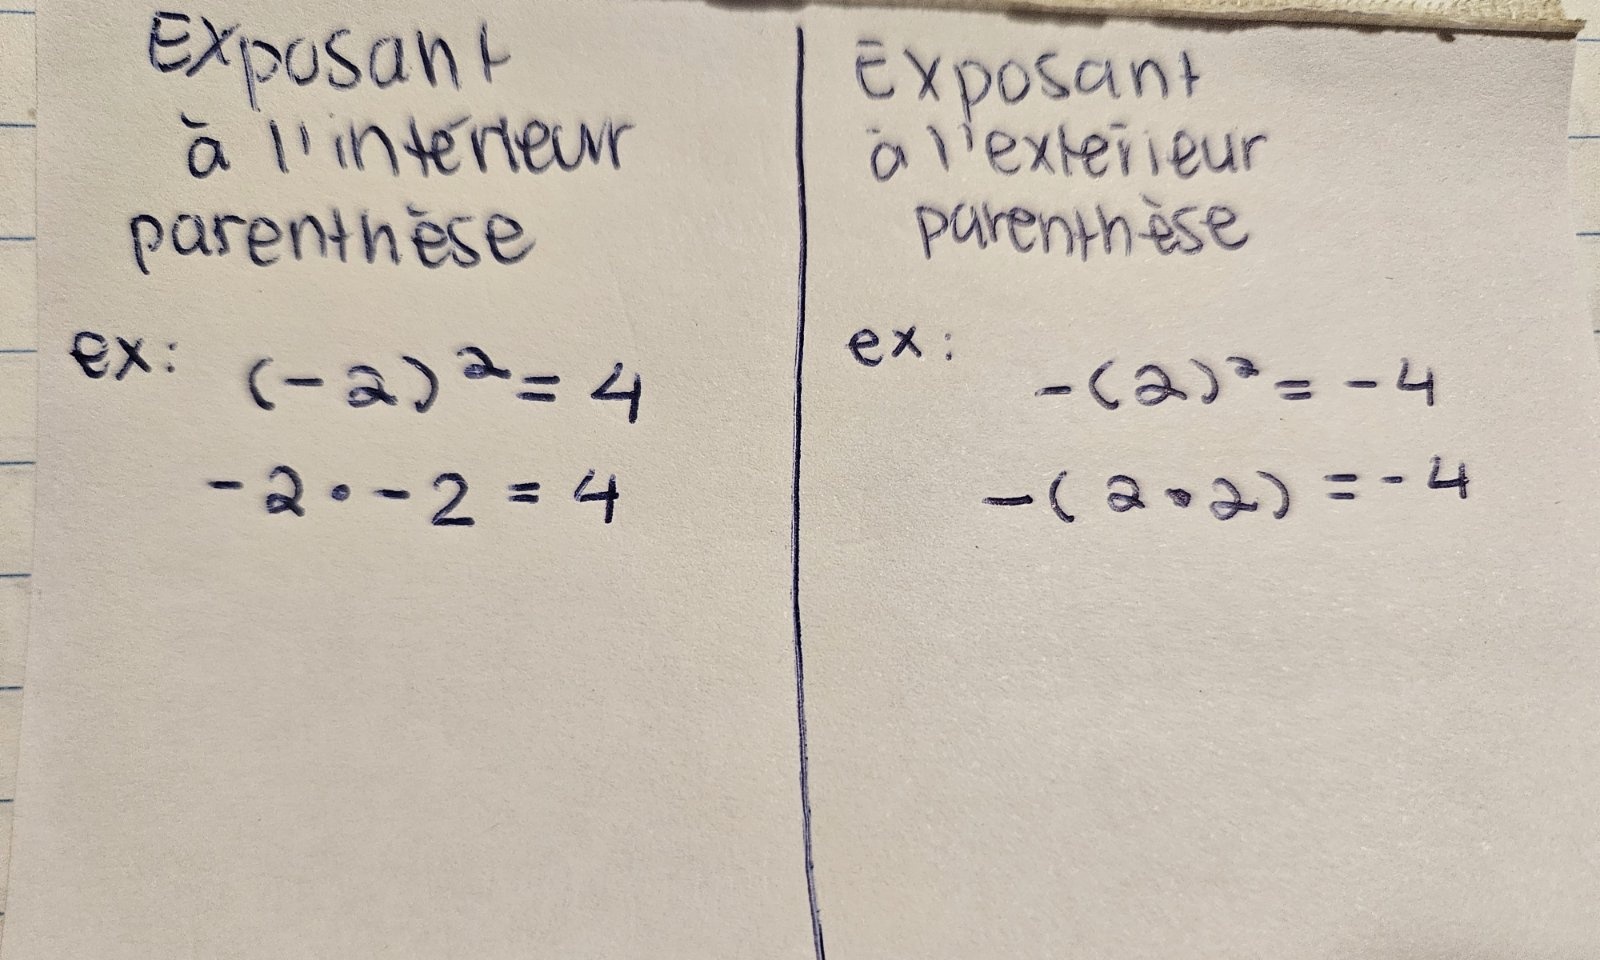 Exposant
à l'intérieur
parenthèse
ex: (-2)² = 4
-2 • -2 = 4
Exposant
à l'extérieur
parenthèse
ex: -(2)² = -4
-(2•2) = -4